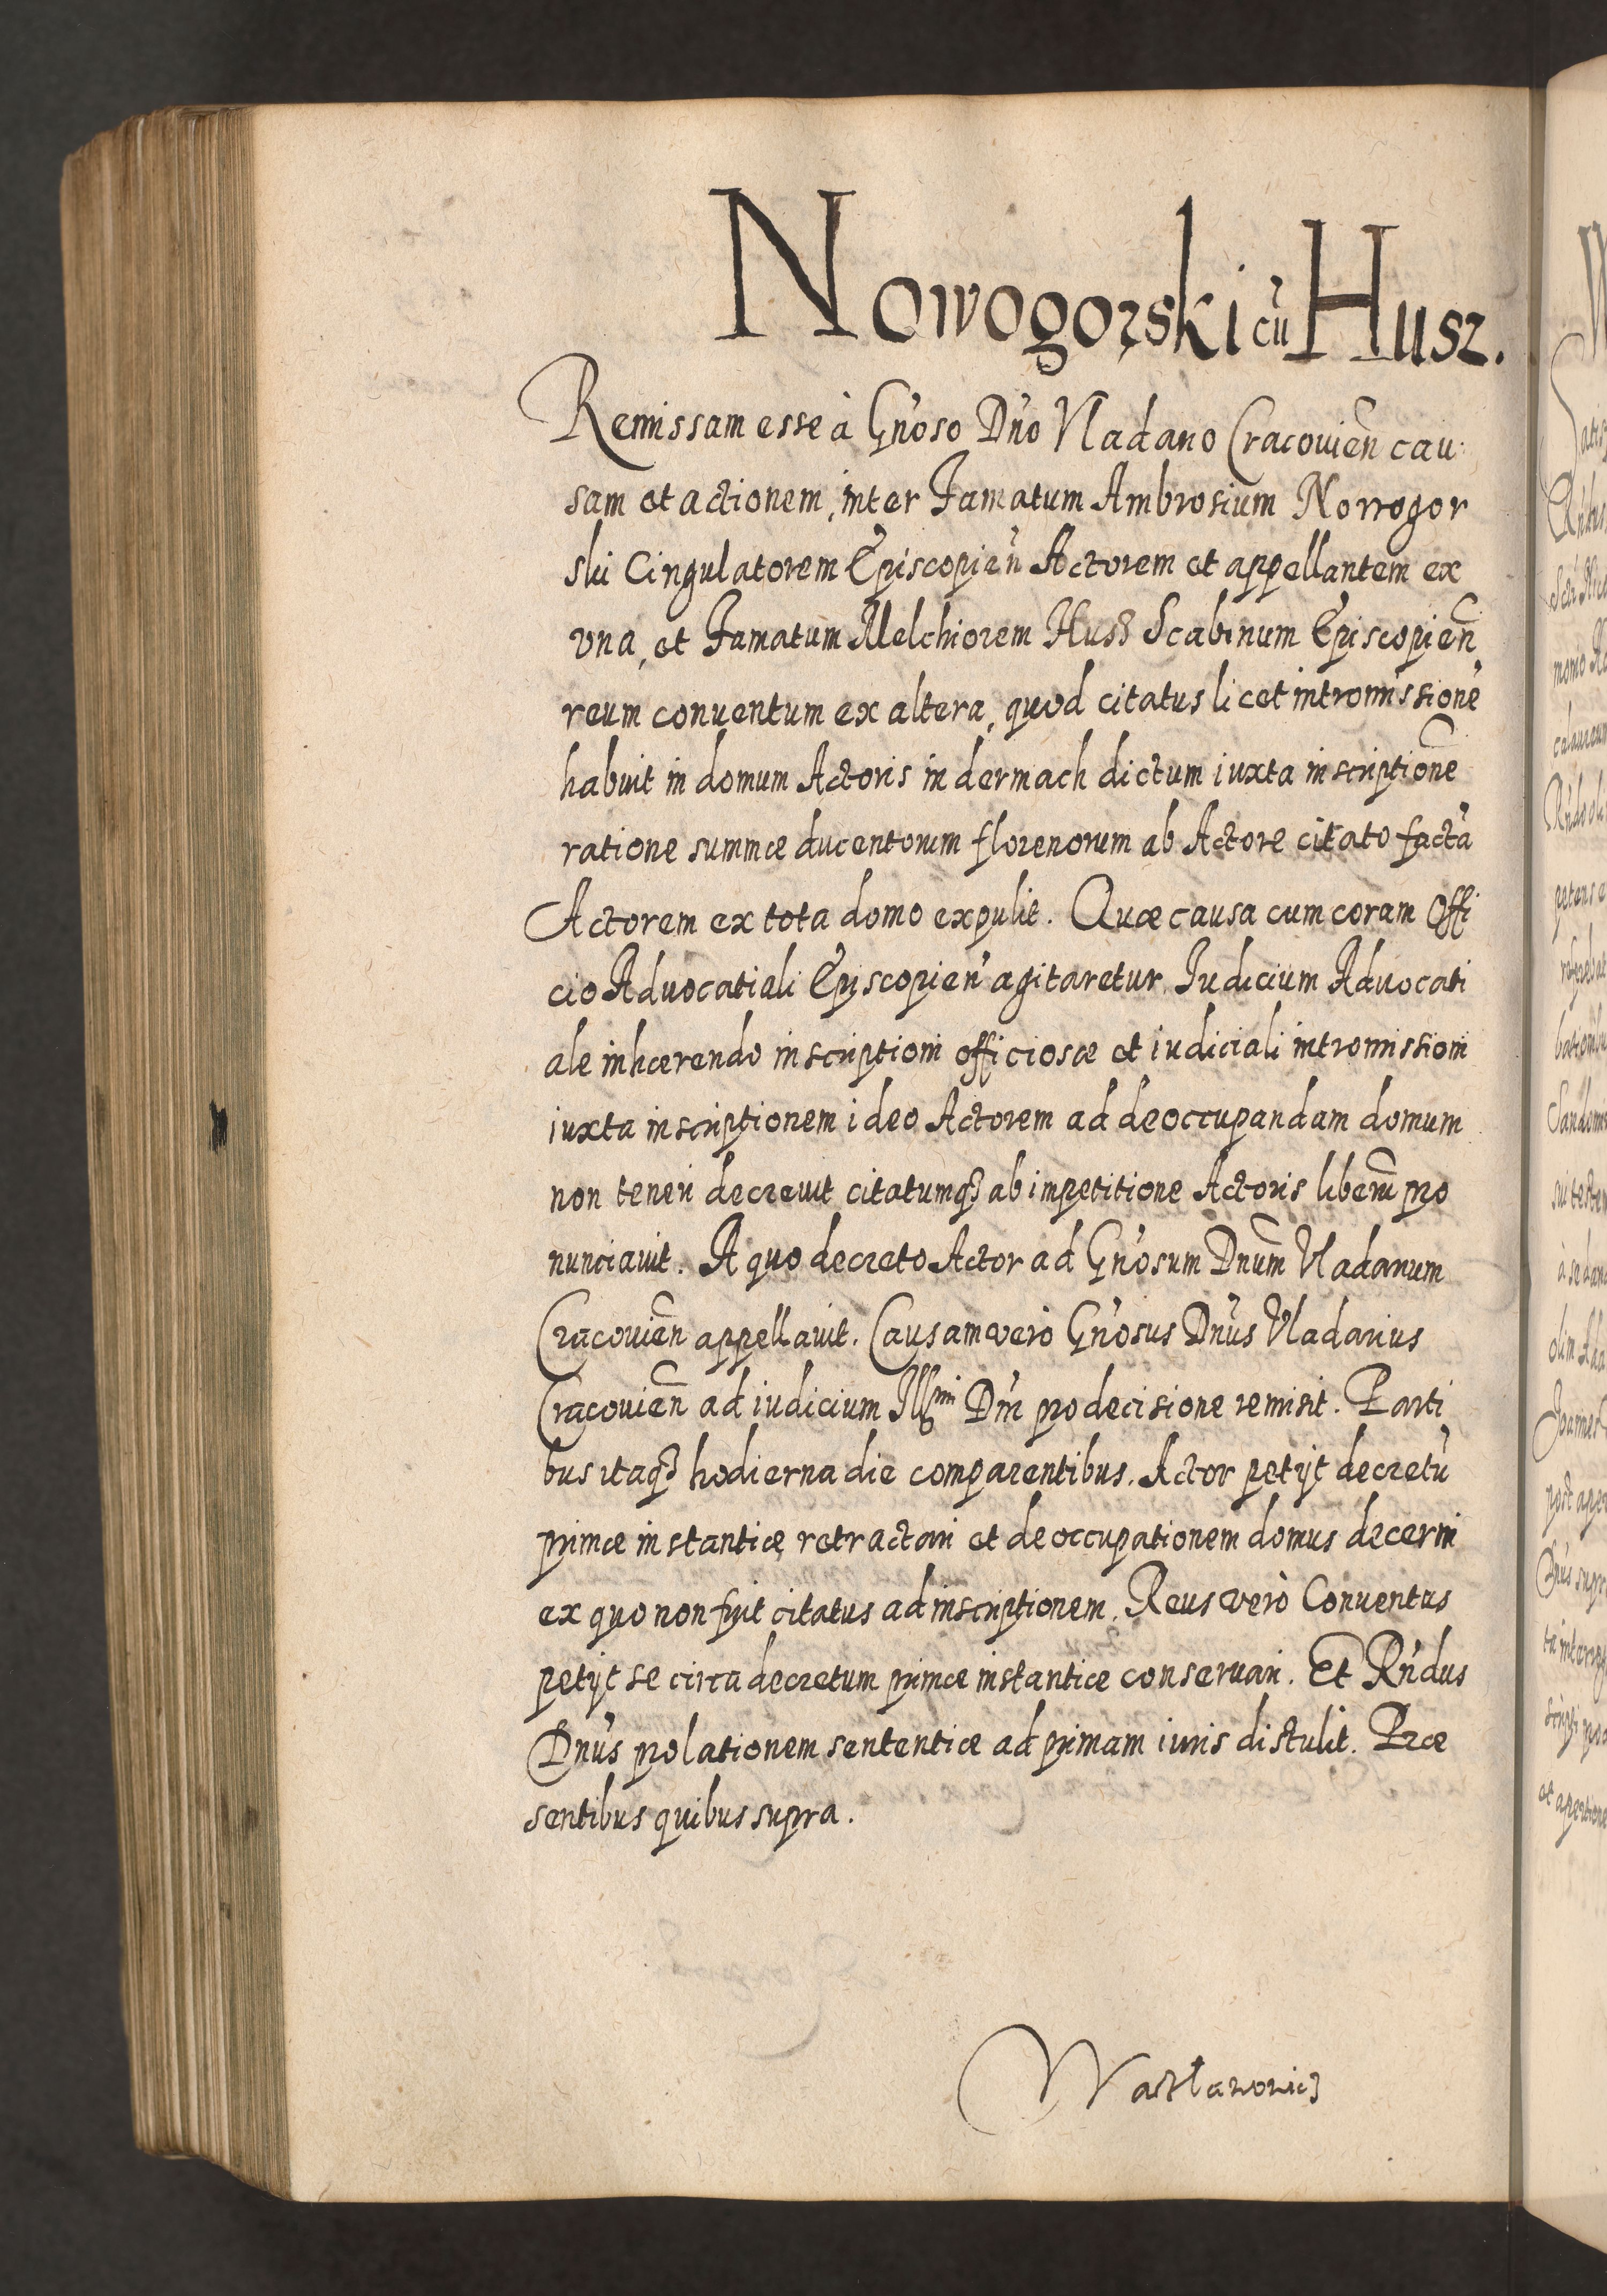 Nowogorski cū Husz.
Remissam esse à Gñoso Dño Vladario Cracovień cau
sam et actionem, inter Famatum Ambrosium Nowogor
ski Cingulatorem Episcopień Actorem et appellantem ex
vna, et Famatum Melchiorem Husz Scabinum Episcopień
reum conuentum ex altera, quod citatus licet intromissionē
habuit in domum Actoris in dermach dictum iuxta inscriptionē
ratione summæ ducentorum florenorum ab Actore citato factā
Actorem ex tota domo expulit. Quæ causa cum coram Offi
cio Aduocatiali Episcopień agitaretur, Iudicium Aduocati
ale inhærendo inscriptioni officiosæ et iudiciali intromissioni
iuxta inscriptionem ideo Actorem ad deoccupandam domum
non teneri decreuit citatumq3 ab impetitione Actoris liberū pro
nunciauit. A quo decreto Actor ad Gñosum Dnūm Vladarium
Cracouień appellauit. Causam verò Gñosus Dñus Vladarius
Cracouień ad iudicium Illmi Dñi pro decisione remisit. Parti
bus itaq3 hodierna die comparentibus. Actor petijt decretū
primæ instantiæ retractari et deoccupationem domus decerni
ex quo non fuit citatus ad inscriptionem. Reus verò Conuentus
petijt se circa decretum primæ instantiæ conseruari. Et Rñdus
Dñus prolationem sententiæ ad primam iuris distulit. Præ
sentibus quibus supra.